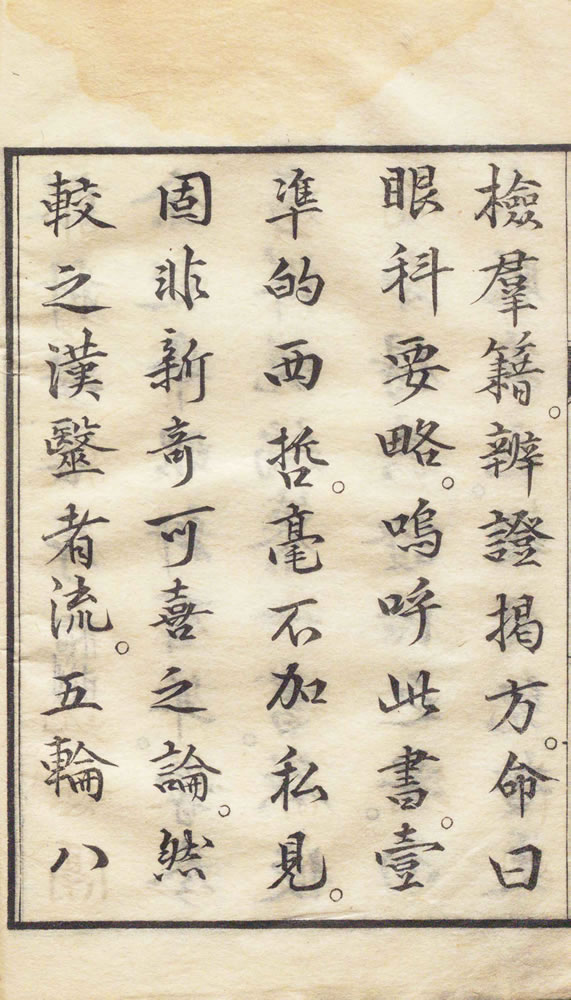 檢羣籍。辨證揭方。命曰
眼科要略。嗚呼此書。壹
準的西哲。毫不加私見。
固非新奇可喜之論。然
較之漢毉者流。五輪八